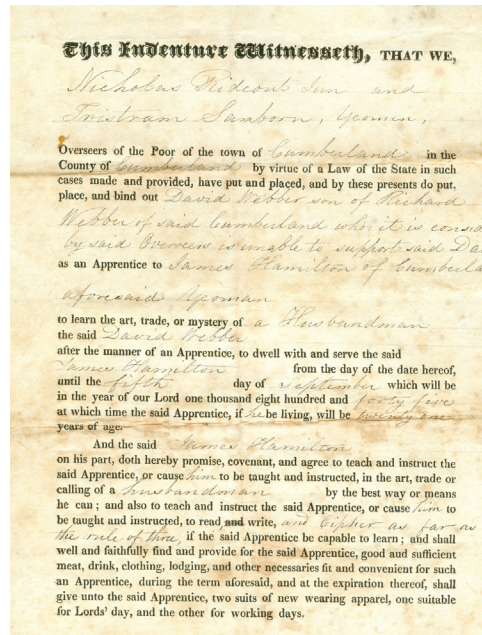 This Indenture Witnesseth, THAT WE,
Nicholas Rideout Jun and
Tristram Sanborn, Yeomen,
Overseers of the Poor of the town of Cumberland in the
County of Cumberland by virtue of a Law of the State in such
cases made and provided, have put and placed, and by these presents do put,
place, and bind out David Webber son of Richard
Webber of said Cumberland who it is consid
by said Overseers is unable to support said Da
as an Apprentice to James Hamilton of Cumberla
aforesaid Yeoman
to learn the art, trade, or mystery of a Husbandman
the said David Webber
after the manner of an Apprentice, to dwell with and serve the said
James Hamilton from the day of the date hereof,
until the fifth day of September which will be
in the year of our Lord one thousand eight hundred and forty five
at which time the said Apprentice, if he be living, will be twenty one
years of age.
And the said James Hamilton
on his part, doth hereby promise, covenant, and agree to teach and instruct the
said Apprentice, or cause him to be taught and instructed, in the art, trade or
calling of a husbandman by the best way or means
he can; and also to teach and instruct the said Apprentice, or cause him to
be taught and instructed, to read and write, and Cipher as far as
the rule of three, if the said Apprentice be capable to learn; and shall
well and faithfully find and provide for the said Apprentice, good and sufficient
meat, drink, clothing, lodging, and other necessaries fit and convenient for such
an Apprentice, during the term aforesaid, and at the expiration thereof, shall
give unto the said Apprentice, two suits of new wearing apparel, one suitable
for Lords' day, and the other for working days.